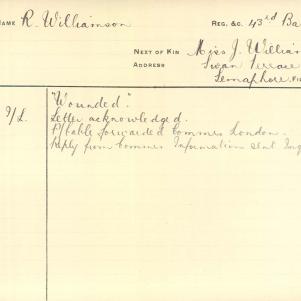 NAME R. Williamson REG. &C. 43rd Ba
NEXT OF KIN Miss J. William
ADDRESS Swan Terrace
Semaphore,
"Wounded".
Letter acknowledged.
P/table forwarded Commrs London.
Reply from Commrs Information sent Enq